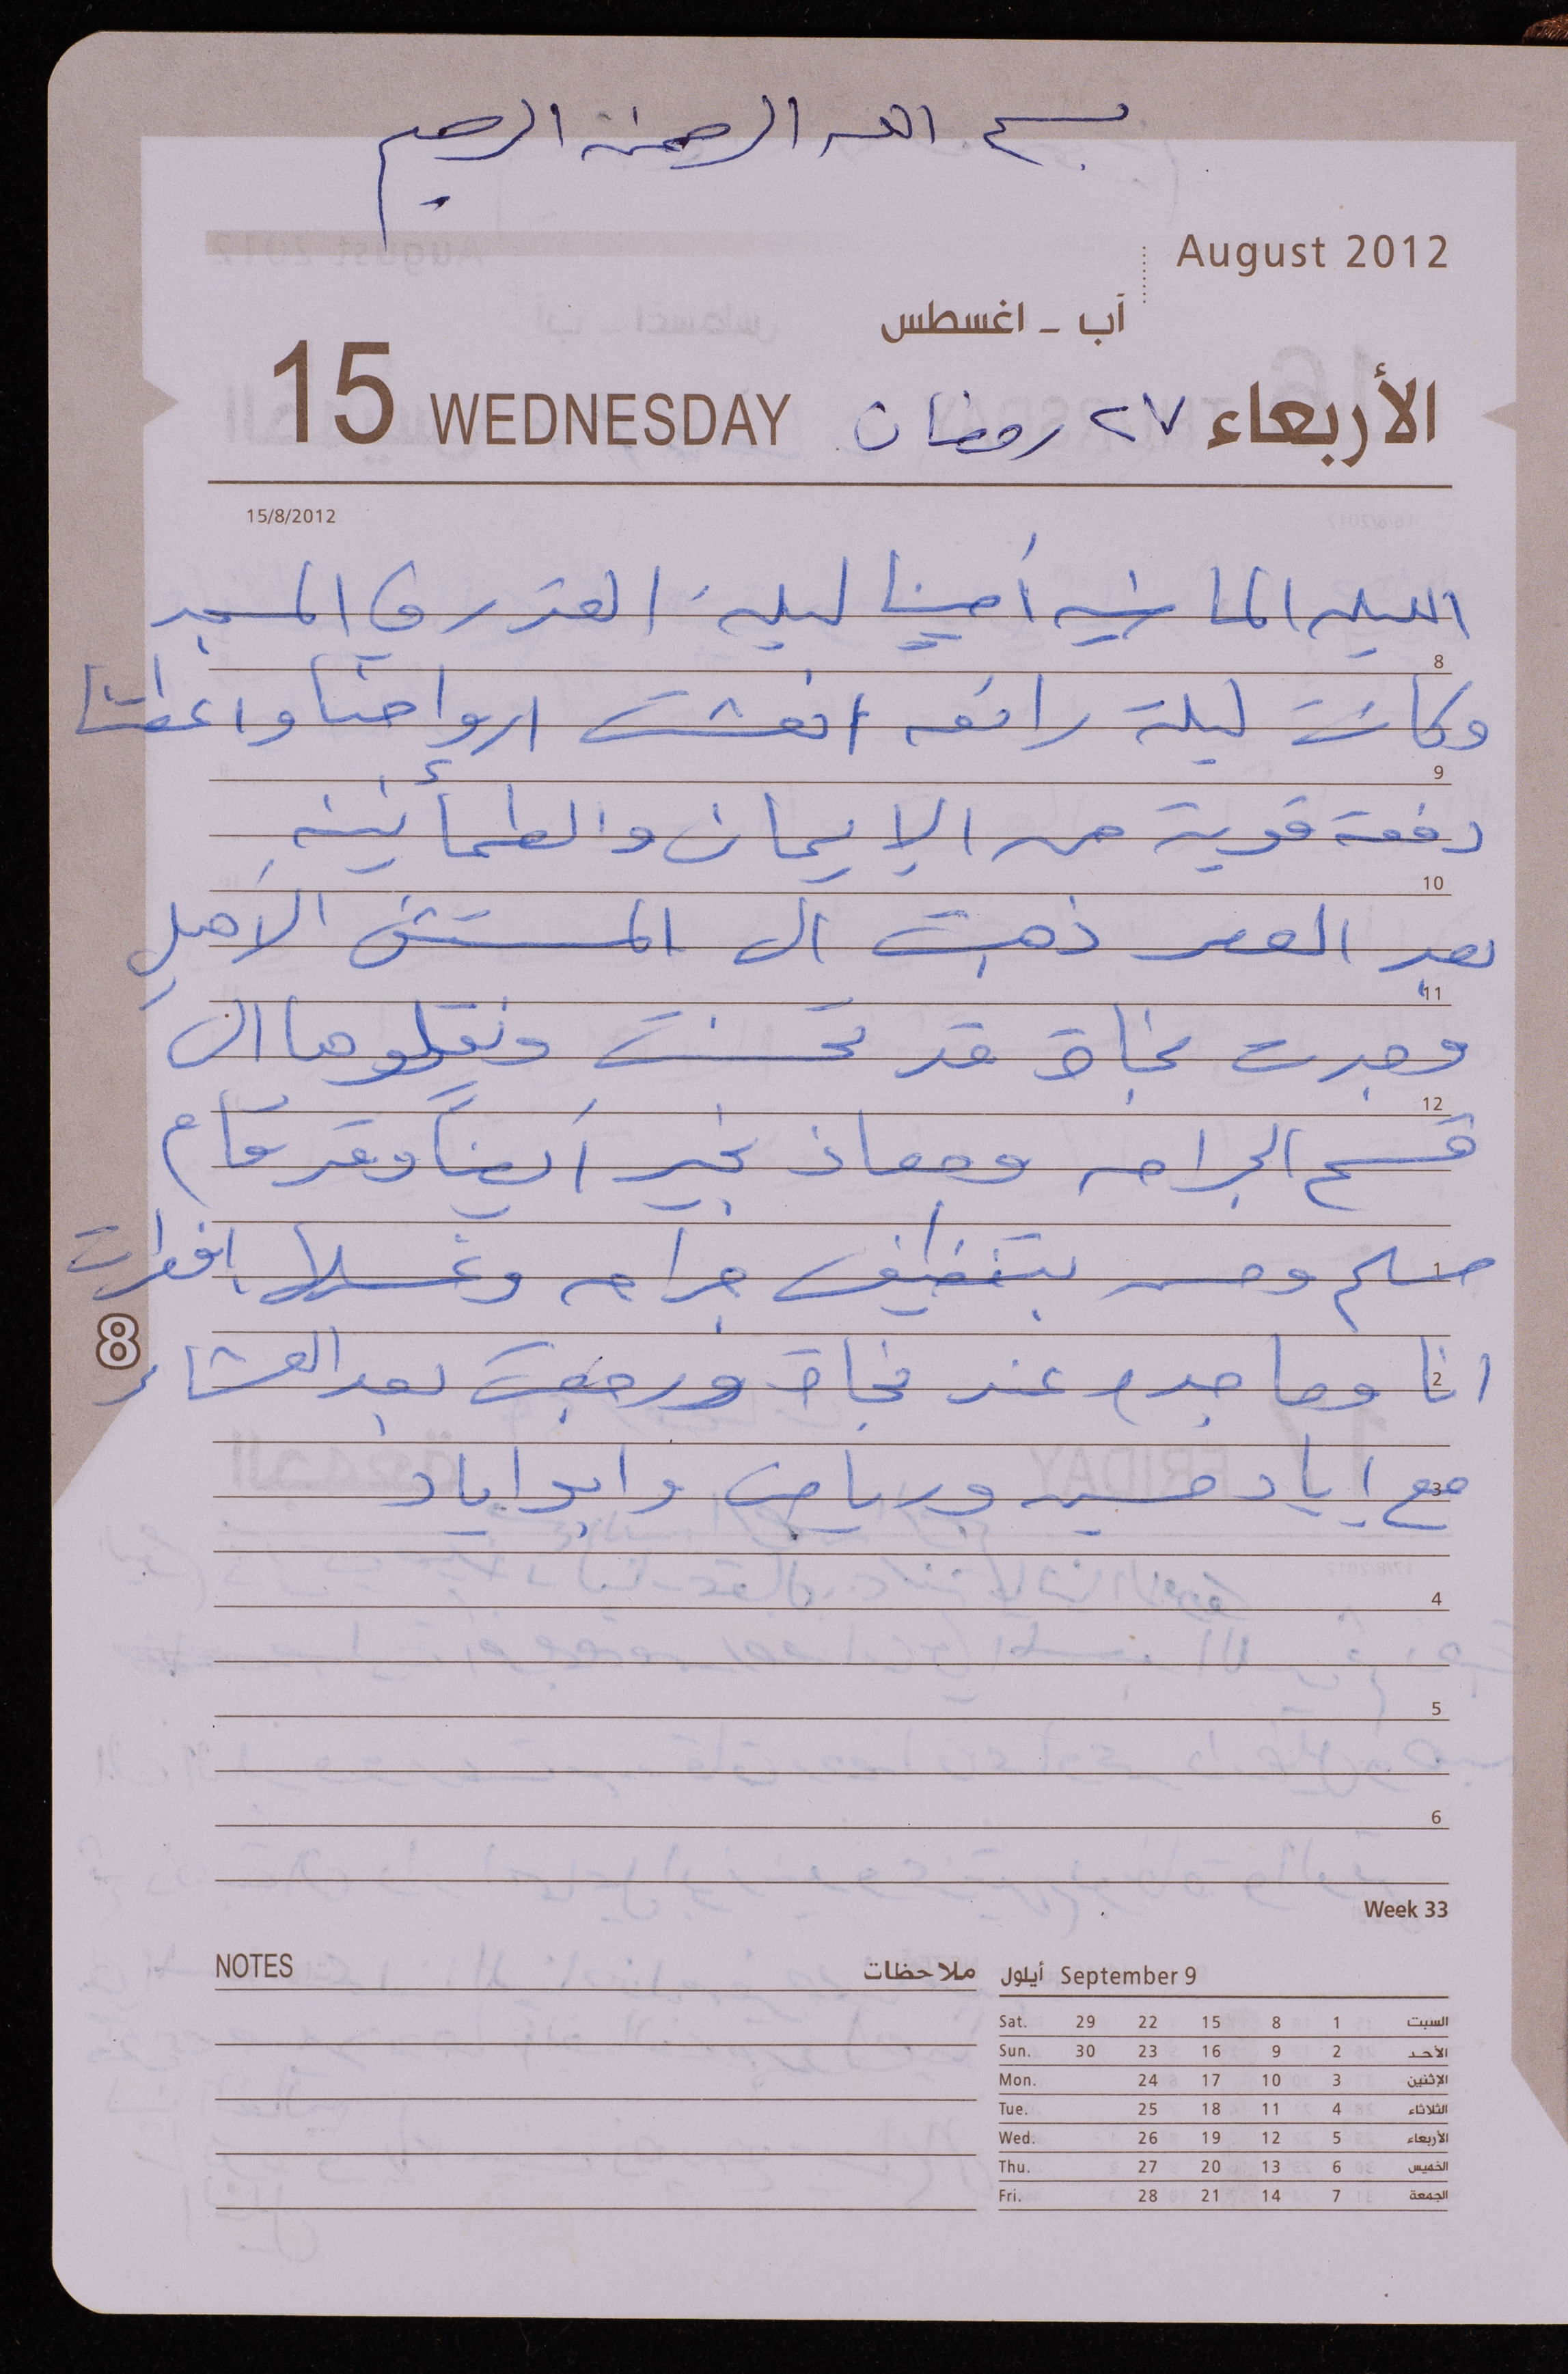 بسم الله الرحمن الرحيم
August 2012
آب - اغسطس
15 WEDNESDAY ٢٧ رمضان الأربعاء
15/8/2012
الليله الماضيه أحيينا ليلة القدر في المسجد
8
وكانت ليلة رائعه انعشت ارواحنا واعطتنا
9
دفعة قوية من الإيمان والطمأنينه
10
بعد العصر ذهبت الى المستشفى الأهلي
11
وجدت نجاة قد تحسنت ونقلوها الى
12
قسم الجراحه ومعاذ بخير أيضاً وقد قام
مسلم وحسن بتنظيف جراحه وغسله افطرت
1
8
انا وماجده عند نجاة ورجعت بعد العشاء
2
مع اياد حسين ورياض وابو اياد
3
4
5
6
Week 33
NOTES ملاحظات
أيلول September 9
Sat. 29 22 15 8 1 السبت
Sun. 30 23 16 9 2 الأحد
Mon. 24 17 10 3 الإثنين
Tue. 25 18 11 4 الثلاثاء
Wed. 26 19 12 5 الأربعاء
Thu. 27 20 13 6 الخميس
Fri. 28 21 14 7 الجمعة